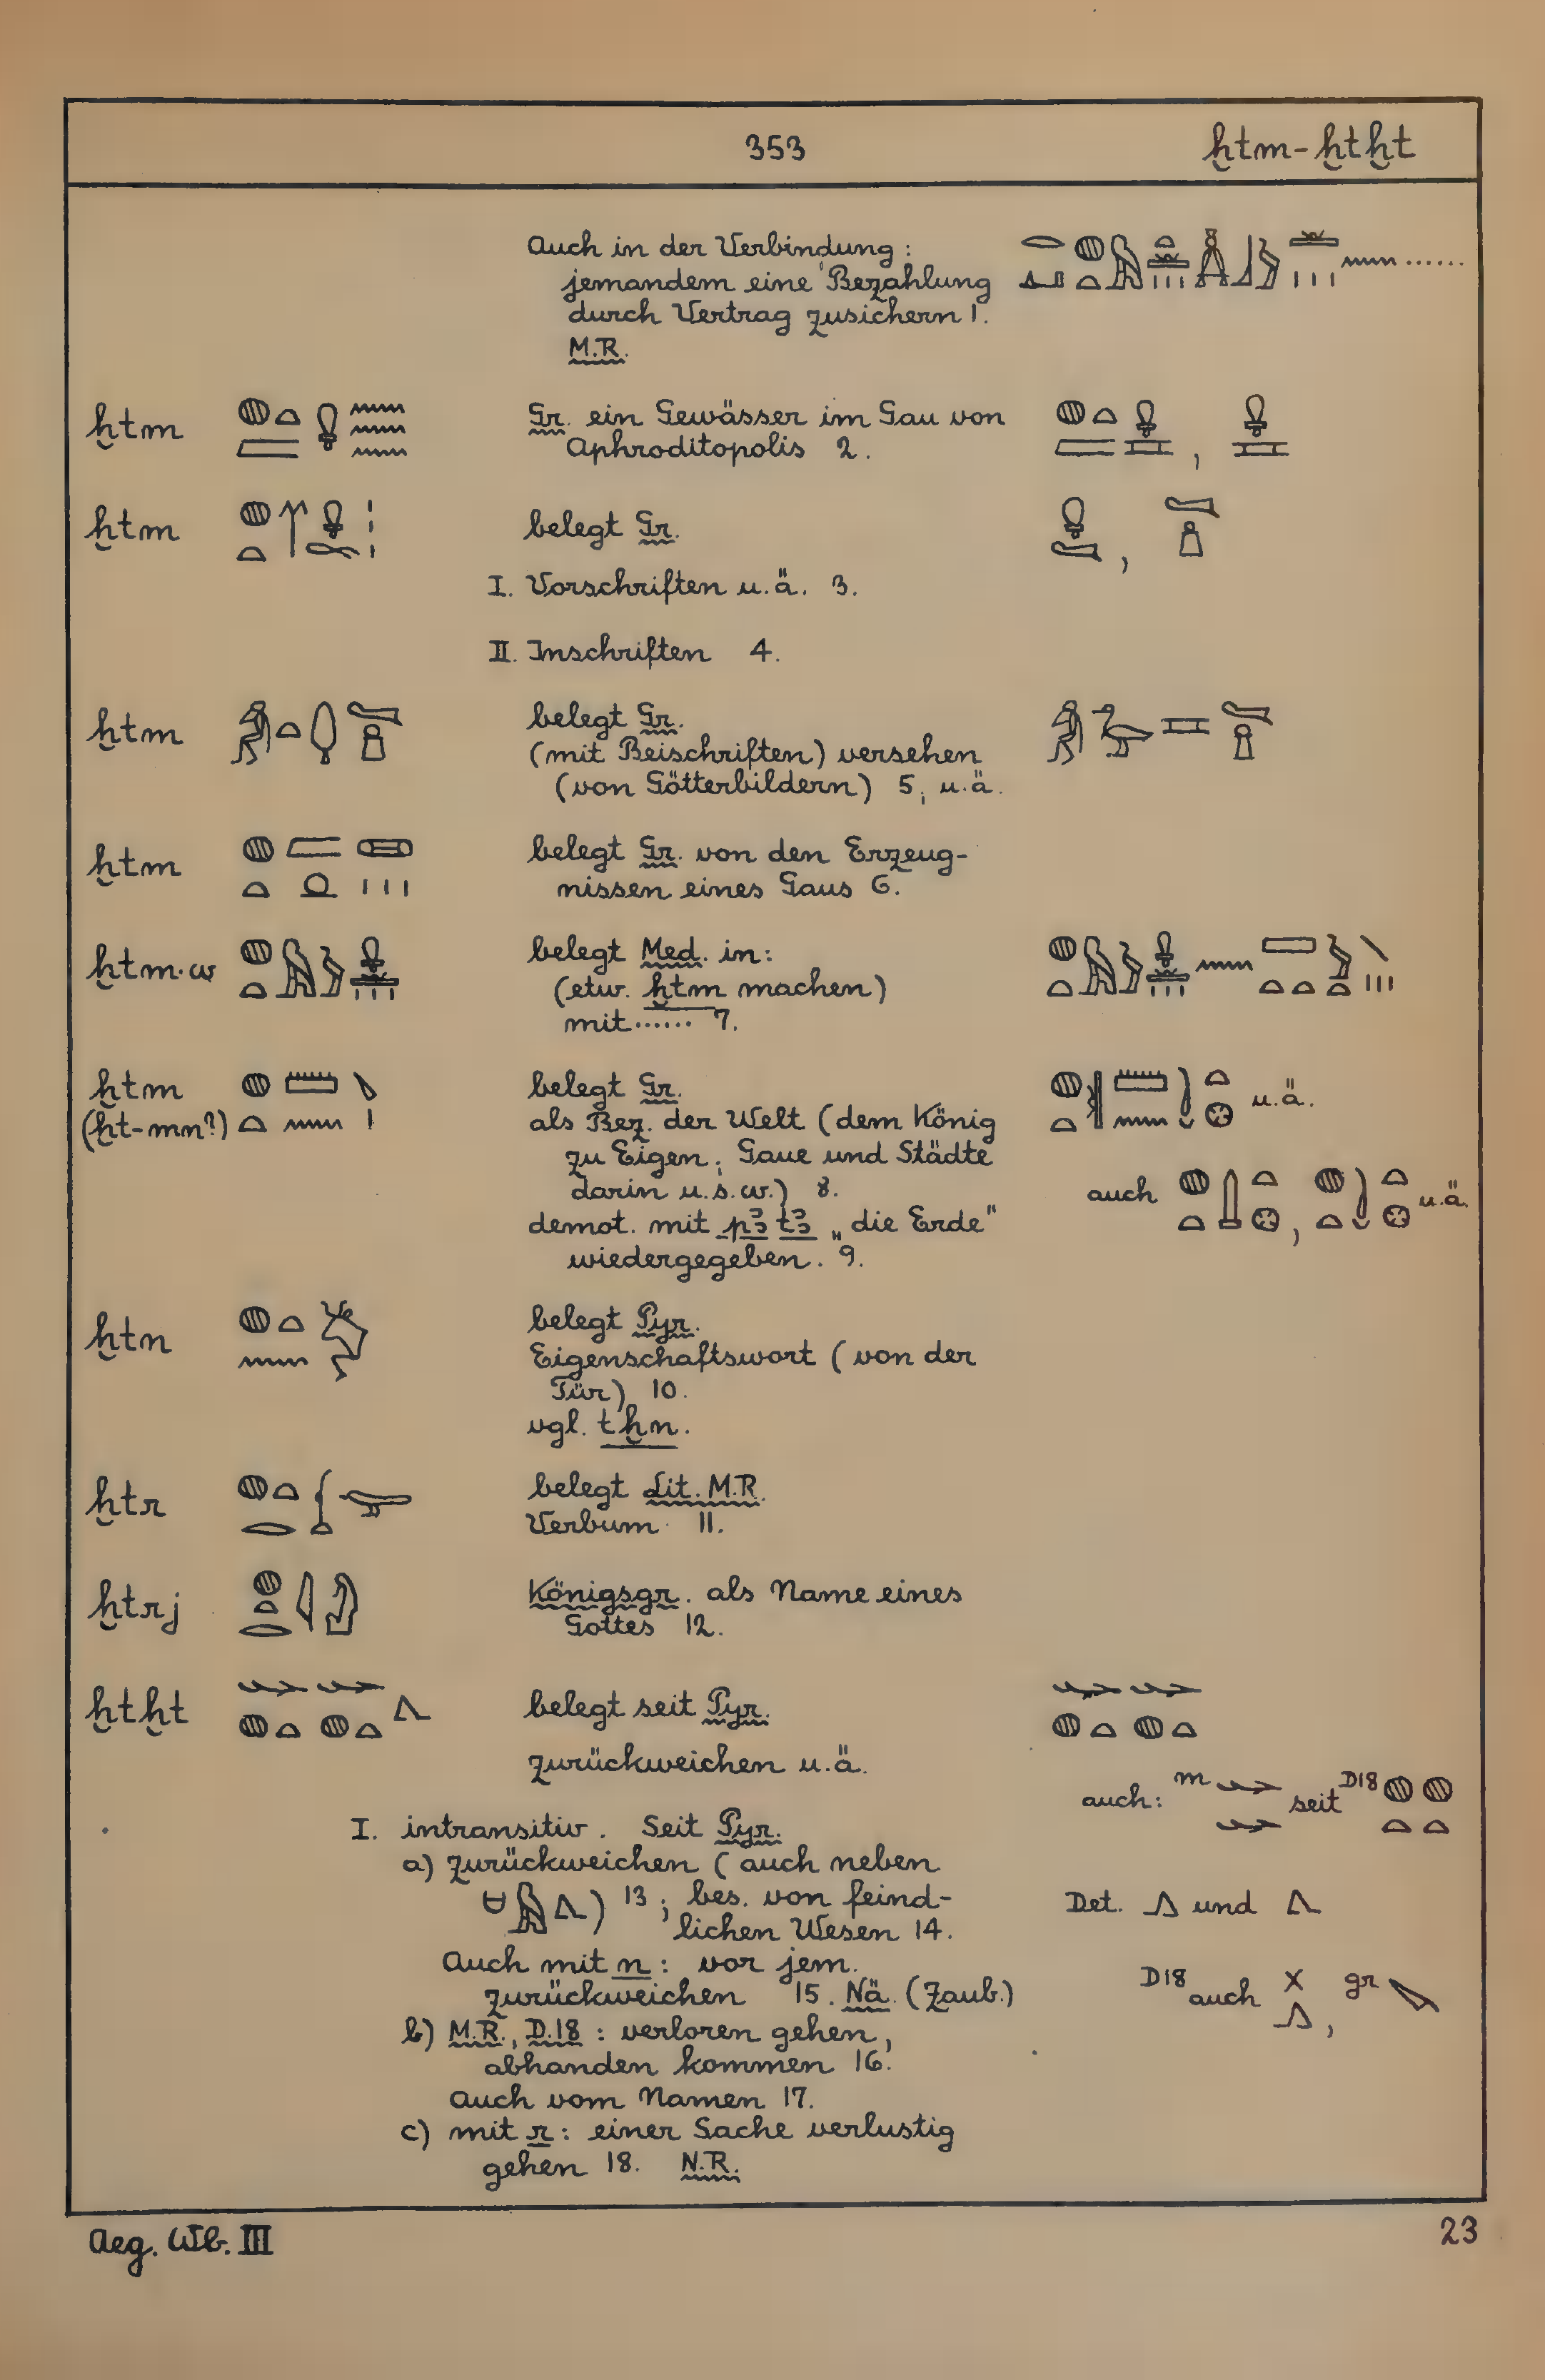 353 ḫtm-ḫtḫt
Auch in der Verbindung:
jemandem eine Bezahlung
durch Vertrag zusichern 1.
M.R.
ḫtm Gr. ein Gewässer im Gau von
Aphroditopolis 2.
ḫtm belegt Gr.
I. Vorschriften u.ä. 3.
II. Inschriften 4.
ḫtm belegt Gr.
(mit Beischriften) versehen
(von Götterbildern) 5; u.ä.
ḫtm belegt Gr. von den Erzeug-
nissen eines Gaus 6.
ḫtm·w belegt Med. in:
(etw. ḫtm machen)
mit...... 7.
ḫtm belegt Gr. u.ä.
(ḫt-mn?) als Bez. der Welt (dem König
zu Eigen; Gaue und Städte
darin u.s.w.) 8. auch , u.ä.
demot. mit pꜣ tꜣ „die Erde"
wiedergegeben. 9.
ḫtn belegt Pyr.
Eigenschaftswort (von der
Tür) 10.
vgl. tḫn.
ḫtr belegt Lit. M.R.
Verbum 11.
ḫtrj Königsgr. als Name eines
Gottes 12.
ḫtḫt belegt seit Pyr.
zurückweichen u.ä.
auch: m seit D18
I. intransitiv. Seit Pyr.
a) zurückweichen (auch neben
) 13; bes. von feind- Det. und
lichen Wesen 14.
Auch mit n: vor jem.
zurückweichen 15. Nä. (Zaub.) D18 auch , gr
b) M.R., D.18: verloren gehen,
abhanden kommen 16.
Auch vom Namen 17.
c) mit r: einer Sache verlustig
gehen 18. N.R.
Aeg. Wb. III 23